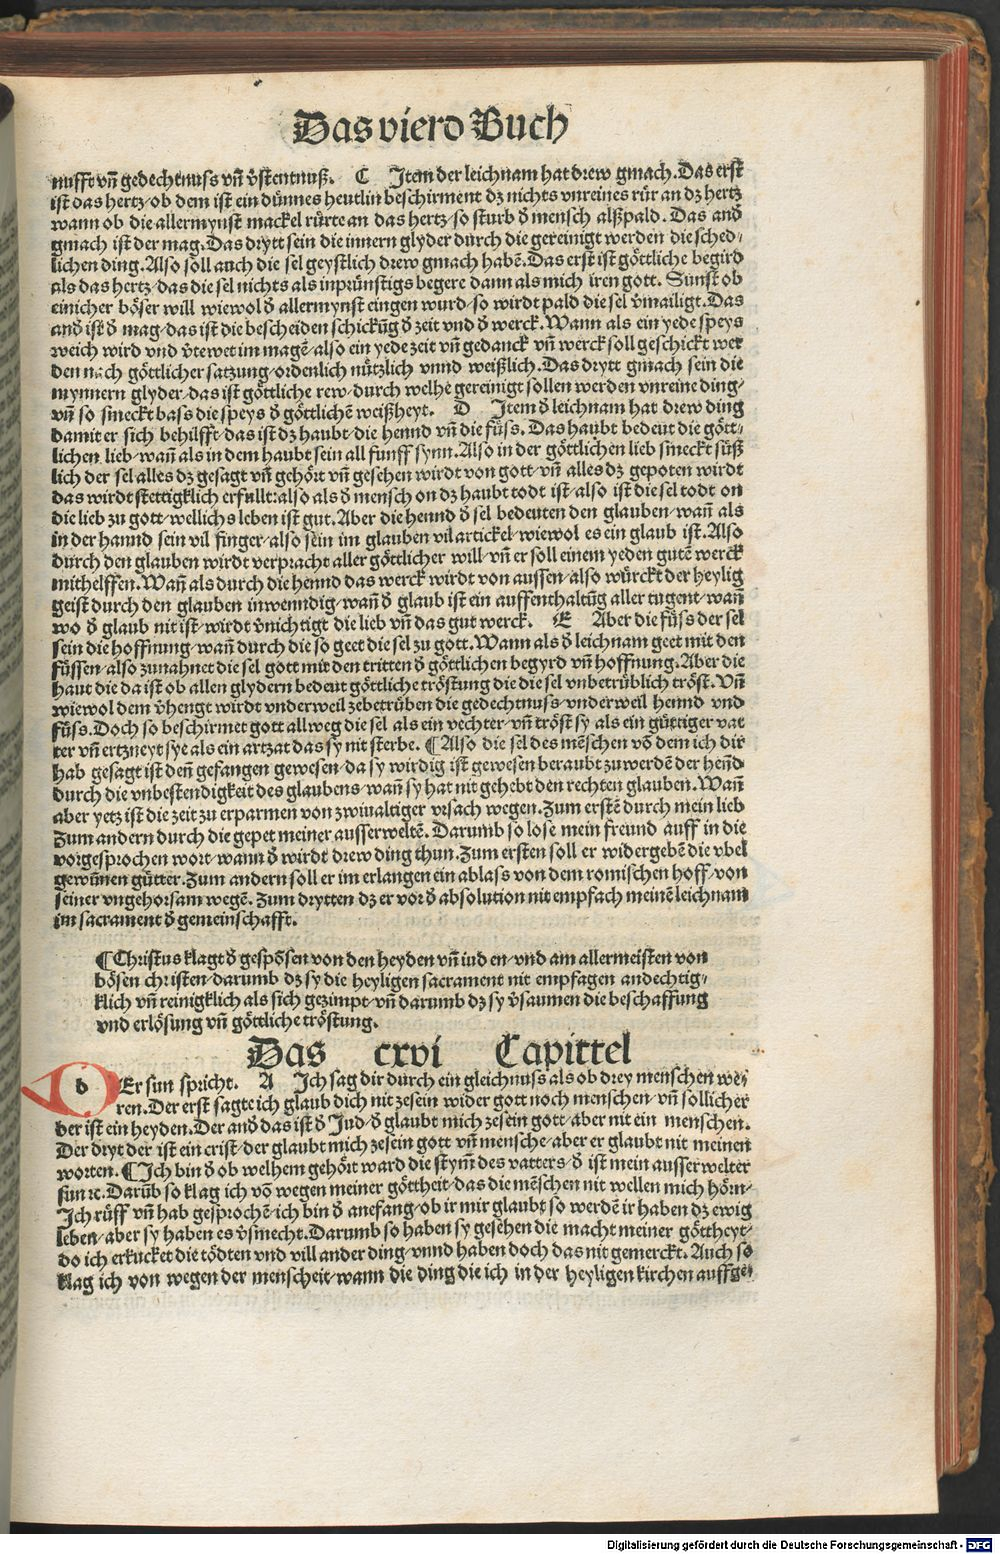 Das vierd Buch
nufft vñ gedechtnuss vñ v̄stentnuß. C Item der leichnam hat drew gmach. Das erst
ist das hertz/ob dem ist ein dünnes heutlin beschirment dz nichts vnreines rür an dz hertz
wann ob die allermynst mackel rürte an das hertz/so sturb d̄ mensch alßpald. Das and̄
gmach ist der mag. Das drytt sein die innern glyder durch die gereinigt werden die sched/
lichen ding. Also soll auch die sel geystlich drew gmach habē. Das erst ist göttliche begird
als das hertz/das die sel nichts als inprünstigs begere dann als mich iren gott. Sunst ob
einicher böser will wiewol d̄ allermynst eingen wurd/so wirdt pald die sel v̄mailigt. Das
and̄ ist d̄ mag/das ist die bescheiden schickūg d̄ zeit vnd d̄ werck. Wann als ein yede speys
weich wird vnd v̄tewet im magē/also ein yede zeit vñ gedanck vñ werck soll geschickt wer
den nach göttlicher satzung/ordenlich nützlich vnnd weißlich. Das drytt gmach sein die
mynnern glyder/das ist göttliche rew/durch welhe gereinigt sollen werden vnreine ding/
vñ so smeckt bass die speys d̄ göttlichē weißheyt. D Item d̄ leichnam hat drew ding
damit er sich behilfft/das ist dz haubt/die hennd vñ die füss. Das haubt bedeut die gött/
lichen lieb/wañ als in dem haubt sein all funff synn. Also in der göttlichen lieb smeckt süß
lich der sel alles dz gesagt vñ gehört vñ gesehen wirdt von gott/vñ alles dz gepoten wirdt
das wirdt stettigklich erfullt:also als d̄ mensch on dz haubt todt ist/also ist die sel todt on
die lieb zu gott/wellichs leben ist gut. Aber die hennd d̄ sel bedeuten den glauben/wañ als
in der hannd sein vil finger/also sein im glauben vil artickel/wiewol es ein glaub ist. Also
durch den glauben wirdt verpracht aller göttlicher will/vñ er soll einem yeden gutē werck
mithelffen. Wañ als durch die hennd das werck wirdt von aussen/also würckt der heylig
geist durch den glauben inwenndig/wañ d̄ glaub ist ein auffenthaltūg aller tugent/wañ
wo d̄ glaub nit ist/wirdt v̄nichtigt die lieb vñ das gut werck. E Aber die füss der sel
sein die hoffnung/wañ durch die so geet die sel zu gott. Wann als d̄ leichnam geet mit den
füssen/also zunahnet die sel gott mit den tritten d̄ göttlichen begyrd vñ hoffnung. Aber die
haut die da ist ob allen glydern bedeut göttliche tröstung die die sel vnbetrüblich tröst. Vñ
wiewol dem v̄hengt wirdt vnderweil zebetrüben die gedechtnuss/vnderweil hennd vnd
füss. Doch so beschirmet gott allweg die sel als ein vechter/vñ tröst sy als ein güttiger vat
ter vñ ertzneyt sye als ein artzat das sy nit sterbe. ¶ Also die sel des mēschen vō dem ich dir
hab gesagt ist deñ gefangen gewesen/da sy wirdig ist gewesen beraubt zu werdē der heñd
durch die vnbestendigkeit des glaubens/wañ sy hat nit gehebt den rechten glauben. Wañ
aber yetz ist die zeit zu erparmen von zwiualtiger vrsach wegen. Zum erstē durch mein lieb
Zum andern durch die gepet meiner ausserweltē. Darumb so lose mein freund auff in die
vorgesprochen wort/wann d̄ wirdt drew ding thun. Zum ersten soll er widergebē die vbel
gewūnen gütter. Zum andern soll er im erlangen ein ablass von dem romischen hoff/von
seiner vngehorsam wegē. Zum drytten dz er vor d̄ absolution nit empfach meinē leichnam
im sacrament d̄ gemeinschafft.
¶ Christus klagt d̄ gespōsen von den heyden vñ iuden/vnd am allermeisten von
bösen christen/darumb dz sy die heyligen sacrament nit empfagen andechtig/
klich vñ reinigklich als sich gezimpt/vñ darumb dz sy v̄saumen die beschaffung
vnd erlösung vñ göttliche tröstung.
Das cxvi Capittel
dEr sun spricht. A Ich sag dir durch ein gleichnuss als ob drey menschen we/
ren. Der erst sagte ich glaub dich nit zesein wider gott noch menschen/vñ sollicher
der ist ein heyden. Der and̄ das ist d̄ Jud/d̄ glaubt mich zesein gott/aber nit ein menschen.
Der dryt der ist ein crist/der glaubt mich zesein gott vñ mensche/aber er glaubt nit meinen
worten. ¶ Ich bin d̄ ob welhem gehört ward die stym̄ des vatters/d̄ ist mein ausserwelter
sun ꝛc. Darūb so klag ich vō wegen meiner göttheit/das die mēschen nit wellen mich hörn/
Ich rüff vñ hab gesprochē/ich bin d̄ anefang/ob ir mir glaubt so werdē ir haben dz ewig
leben/aber sy haben es v̄smecht. Darumb so haben sy gesehen die macht meiner göttheyt/
do ich erkucket die tödten vnd vill ander ding/vnnd haben doch das nit gemerckt. Auch so
klag ich von wegen der menscheit/wann die ding die ich in der heyligen kirchen auffge/
Digitalisierung gefördert durch die Deutsche Forschungsgemeinschaft - DFG